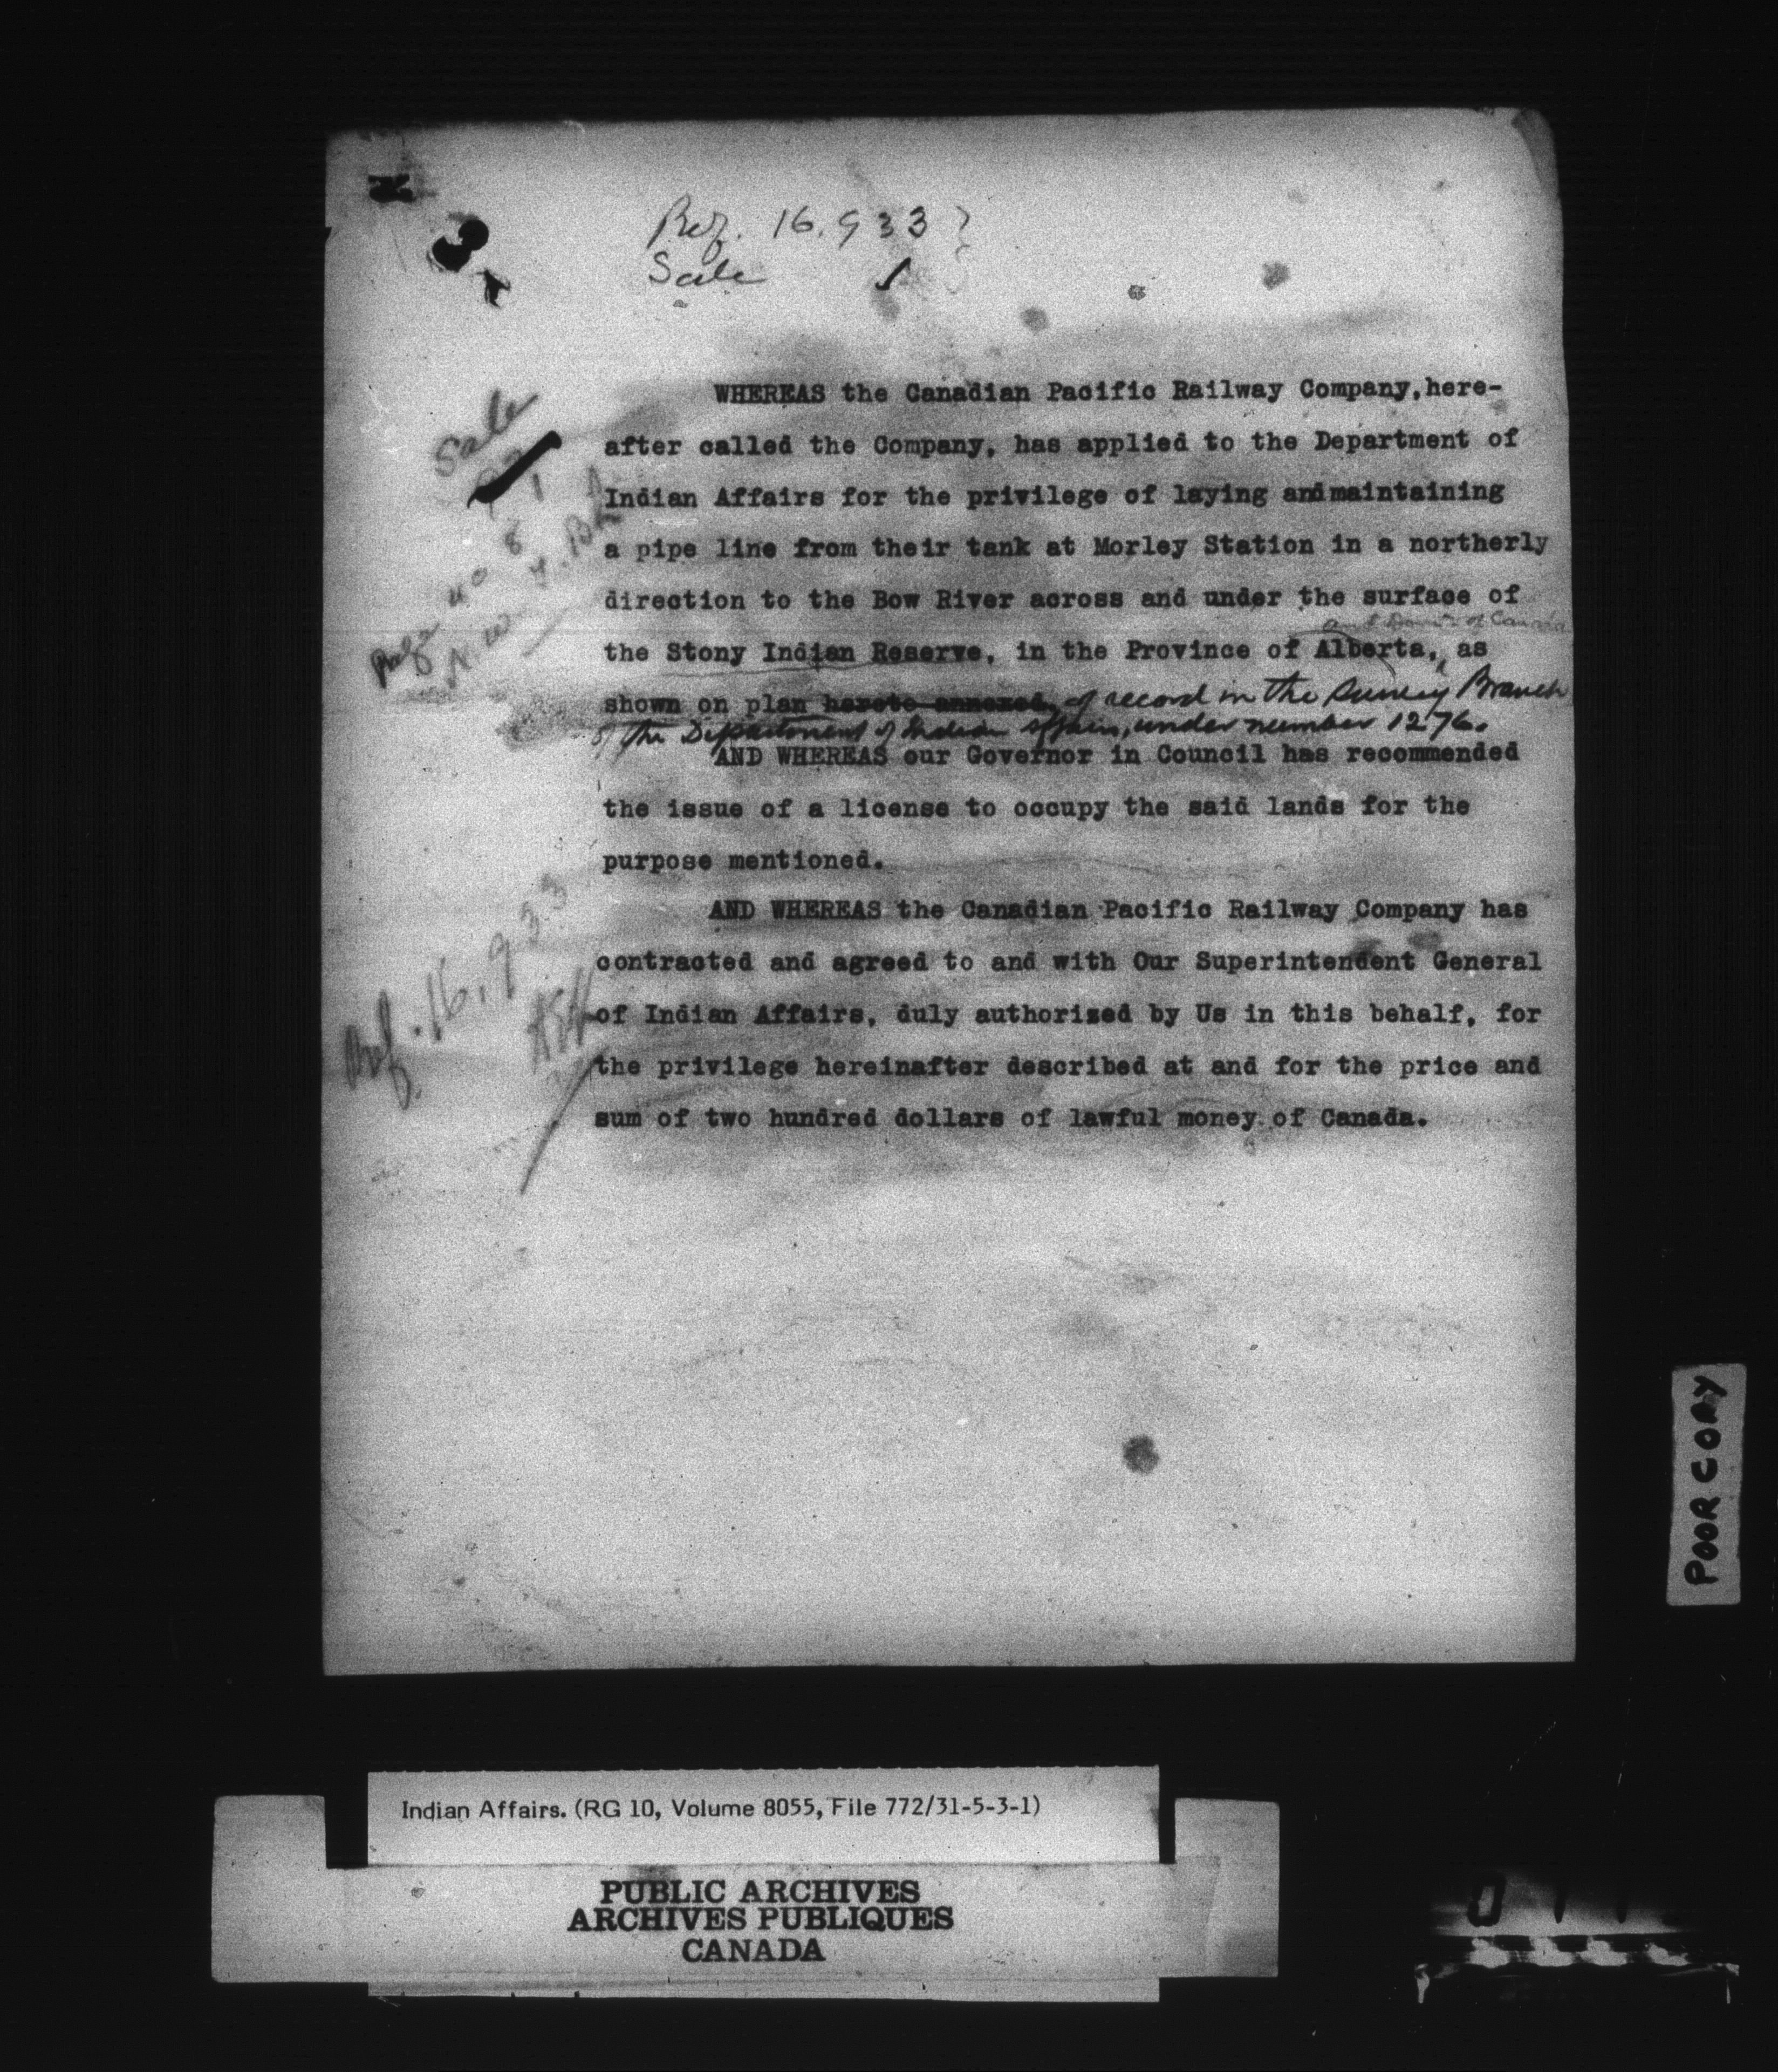 Ref. 16.933?
Sale
WHEREAS the Canadian Pacific Railway Company,here-
after called the Company, has applied to the Department of
Indian Affairs for the privilege of laying and maintaining
a pipe line from their tank at Morley Station in a northerly
direction to the Bow River across and under the surface of
and Dom'n of Canada
the Stony Indian Reserve, in the Province of Alberta, as
shown on plan hereto annexed, of record in the Survey Branch
of the Department of Indian Affairs, under number 1276.
AND WHEREAS our Governor in Council has recommended
the issue of a license to occupy the said lands for the
purpose mentioned.
AND WHEREAS the Canadian Pacific Railway Company has
contracted and agreed to and with Our Superintendent General
of Indian Affairs, duly authorized by Us in this behalf, for
the privilege hereinafter described at and for the price and
sum of two hundred dollars of lawful money of Canada.
Sale
Page 40
Ref. 16,933
POOR COPY
Indian Affairs. (RG 10, Volume 8055, File 772/31-5-3-1)
PUBLIC ARCHIVES
ARCHIVES PUBLIQUES
CANADA